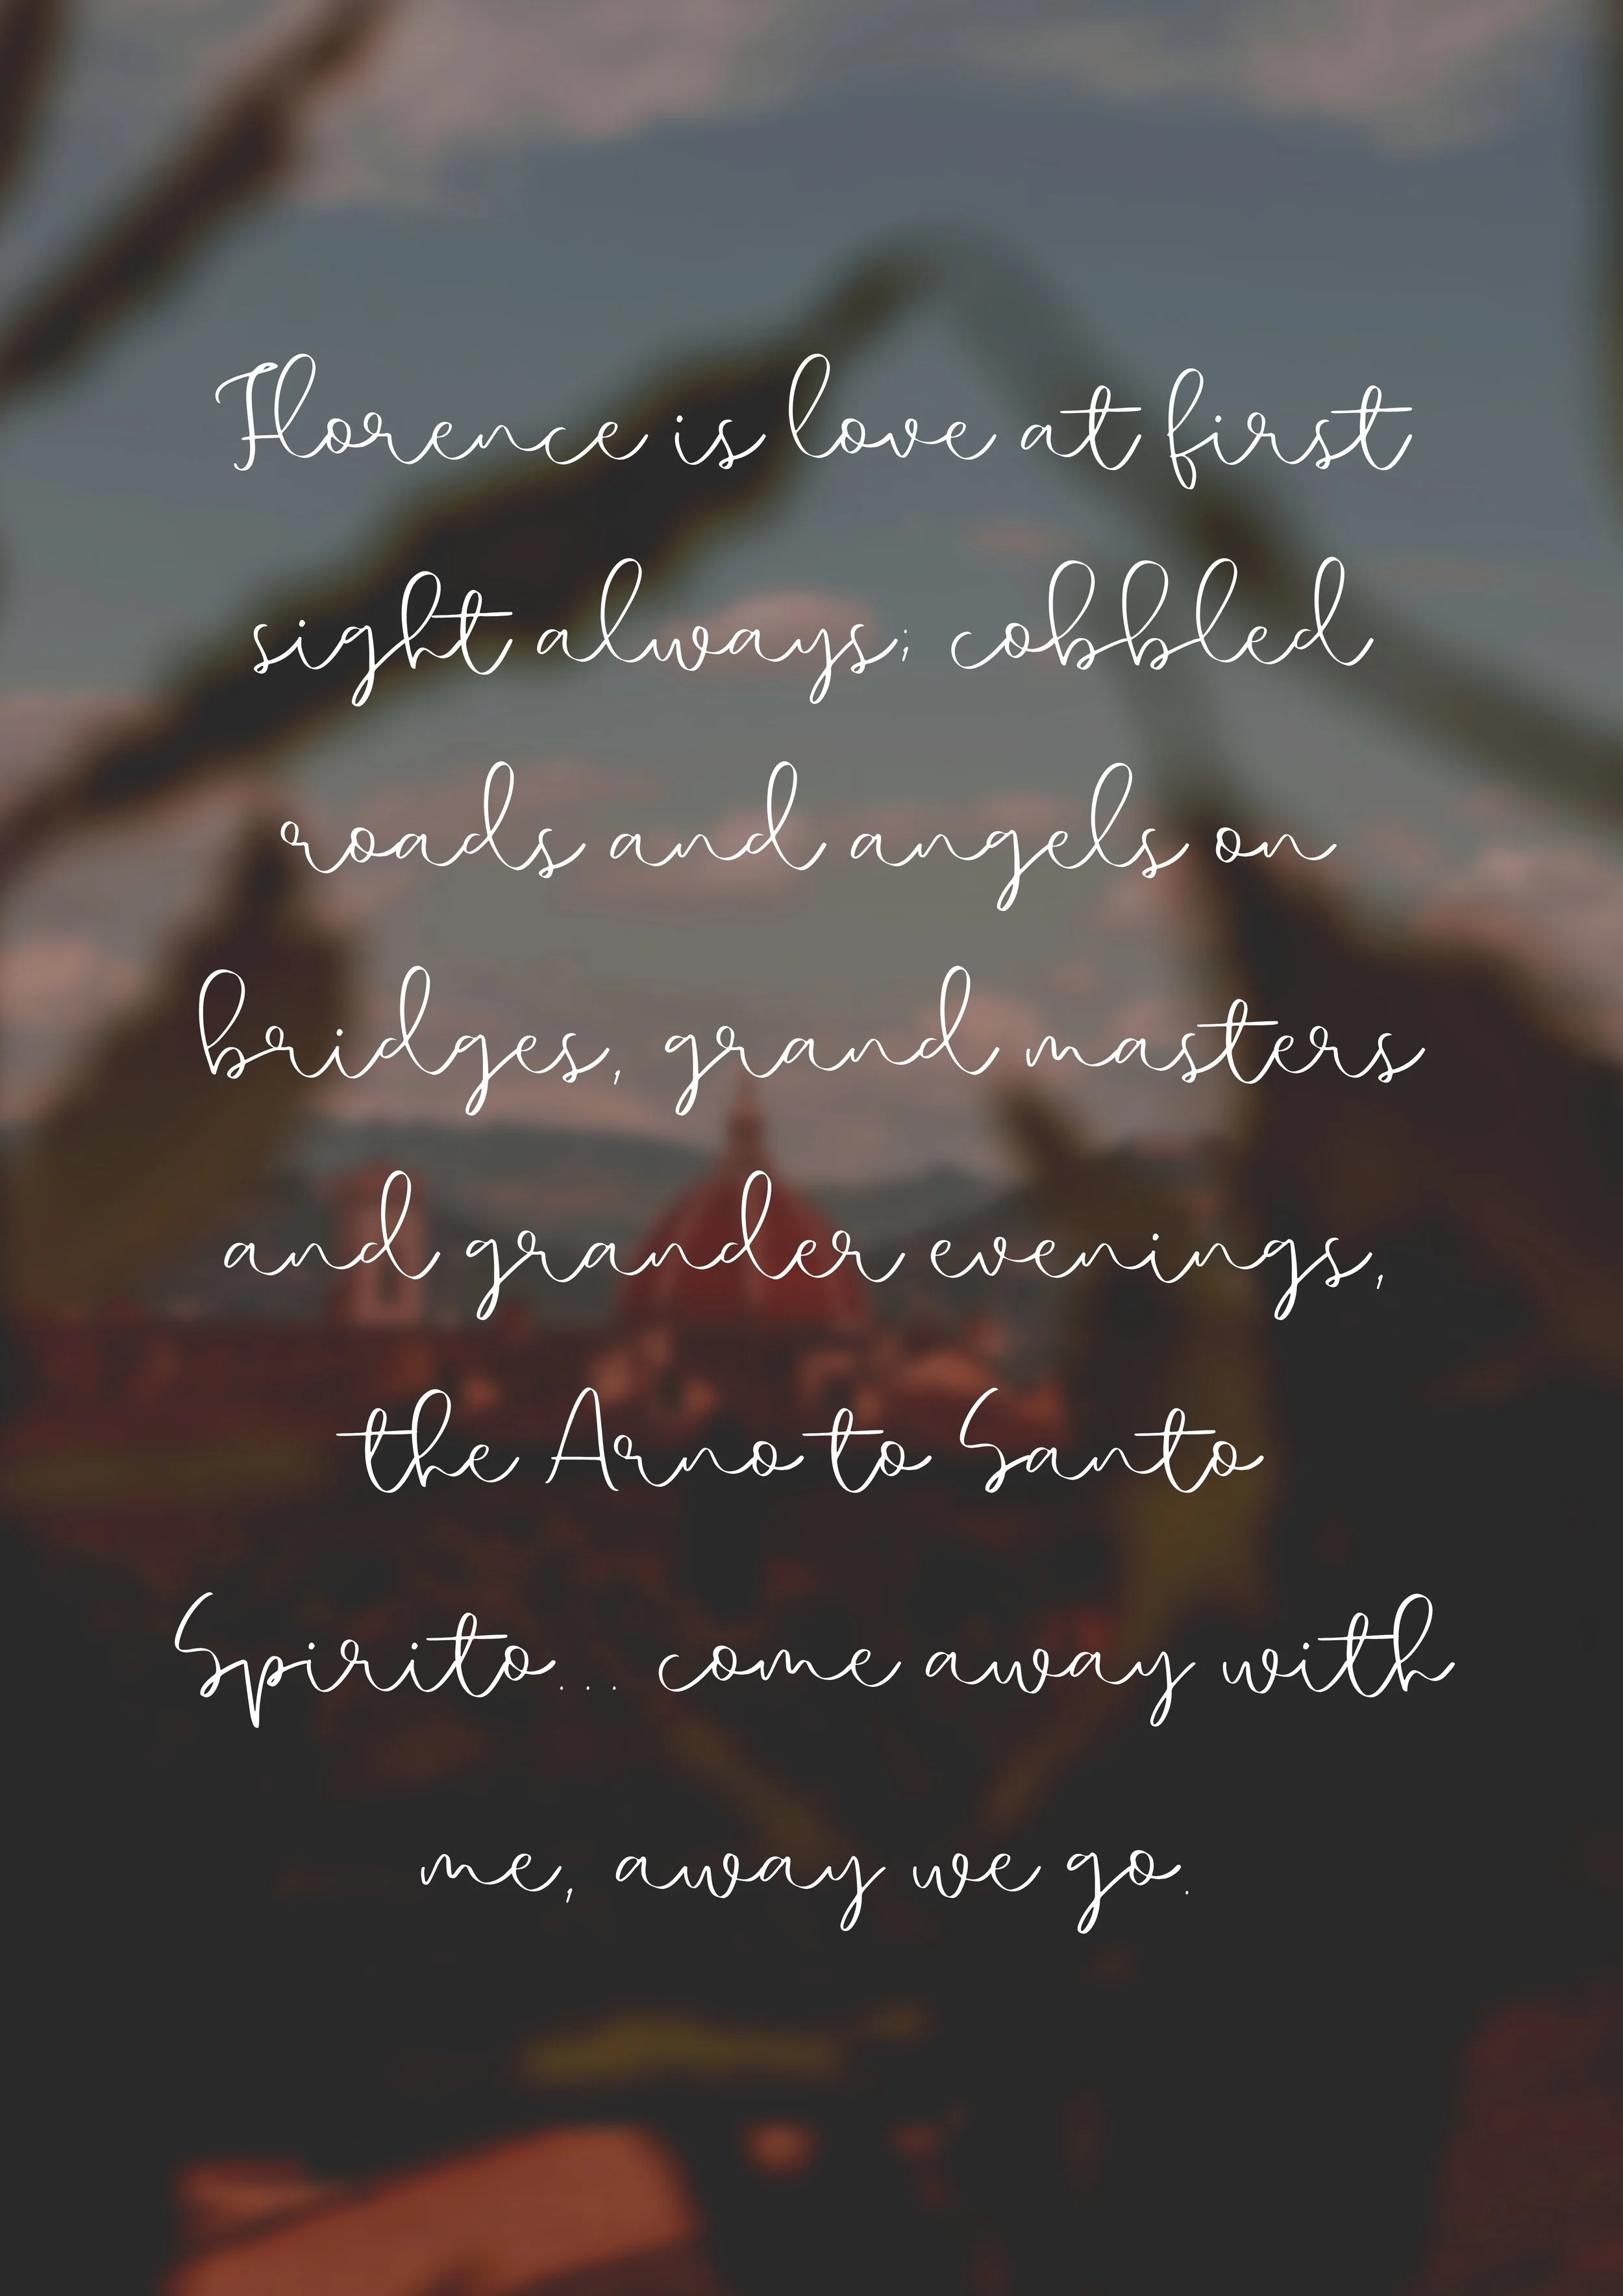 Florence is love at first
sight always; cobbled
roads and angels on
bridges, grand masters
and grander evenings,
the Arno to Santo
Spirito... come away with
me, away we go.